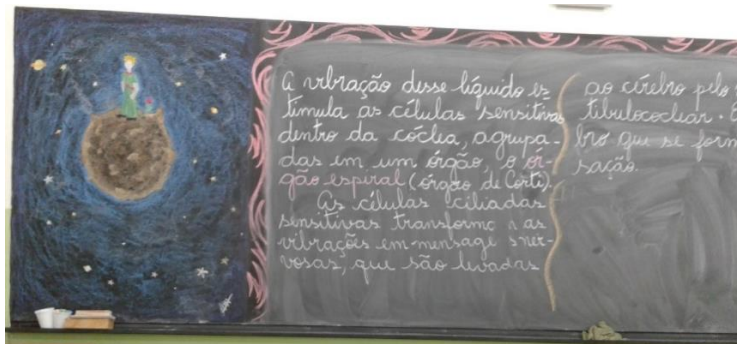 A vibração desse líquido es
timula as células sensitivas
dentro da cóclea, agrupa-
das em um órgão, o ór-
gão espiral (órgão de Corti).
As células ciliadas
sensitivas transforma n as
vibrações em mensage s ner-
vosas, que são levadas
ao cérebro pelo
tibulococlear.
bro que se form
sação.